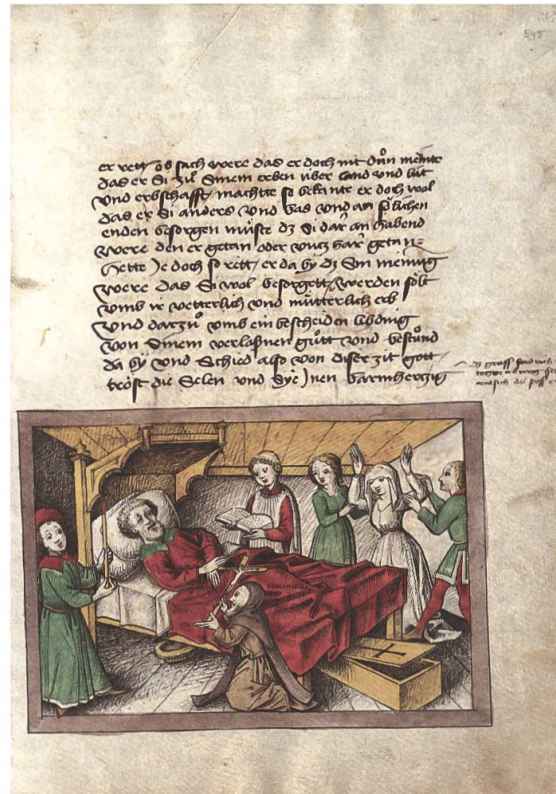 595
er rett ob sach were das er doch nit duͦn meinte
das er Si zuͦ Sinem erben über Land und lüt
und erbschafft machtte so bekante er doch wol
das er Si anders und bas und an soͤlichen
enden besorgen muͤste dz Si dar an habend
were den er getan oder untz har getan
hette Je doch so rett er da by dz Sin meinung
were das Si wol besorgett werden soͤlt
umb ir vetterlich und muͤtterlich erb
und darzuͦ umb ein bescheiden libding
von Sinem verlaßnen guͦtt und bestuͦnd
da by und Schied also von diser zit gott
troͤst die Selen und Sye Jnen barmhertzig